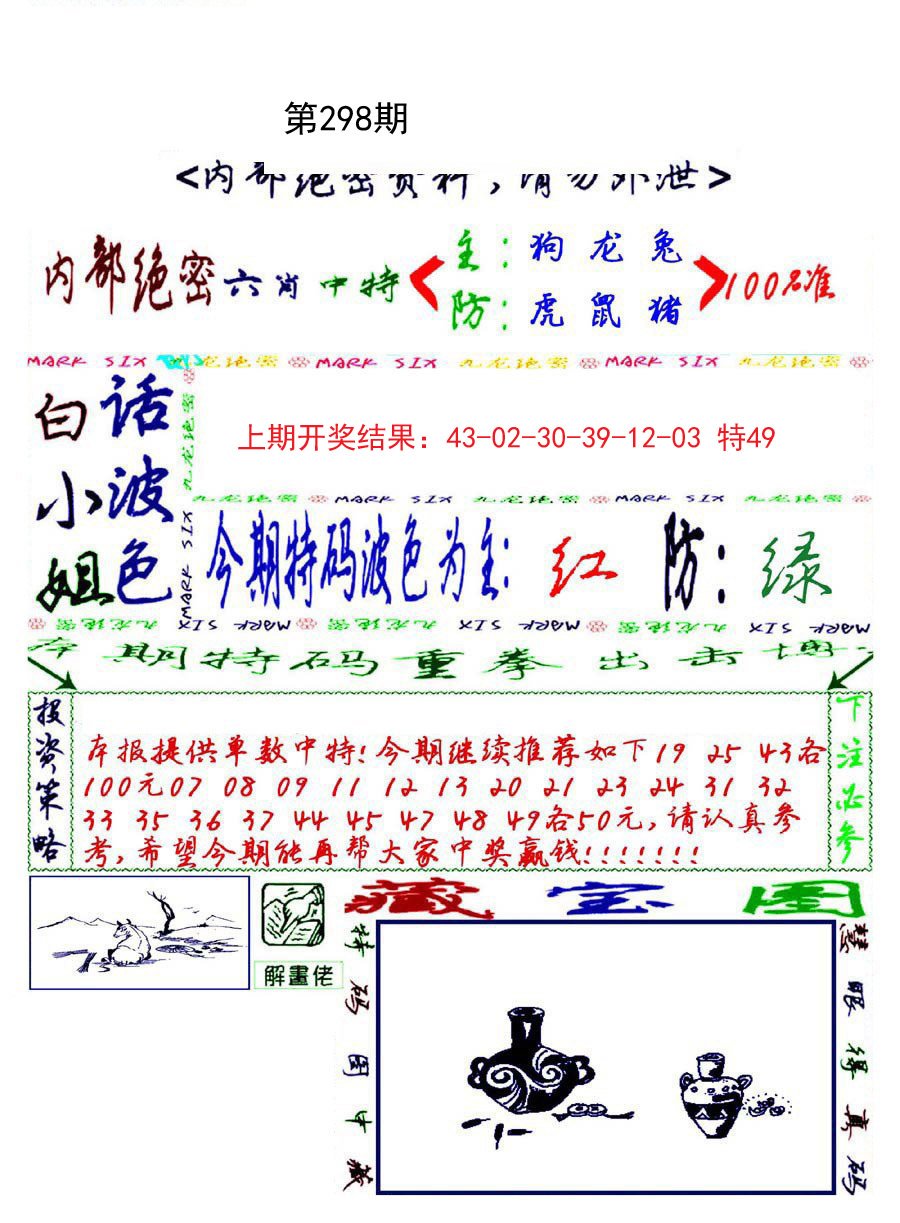 第298期
<内部绝密资料，请勿外泄>
内部绝密六肖中特
主：狗 龙 兔
防：虎 鼠 猪
100%准
MARK SIX 九龙绝密 MARK SIX 九龙绝密 MARK SIX 九龙绝密
白小姐
话波色
九龙绝密 MARK SIX
上期开奖结果：43-02-30-39-12-03 特49
九龙绝密 MARK SIX 九龙绝密 MARK SIX 九龙绝密
今期特码波色为主：红 防：绿
九龙绝密 MARK SIX 九龙绝密 MARK SIX 九龙绝密 MARK SIX
本期特码重拳出击博
投资策略
本报提供单数中特!今期继续推荐如下19 25 43各
100元07 08 09 11 12 13 20 21 23 24 31 32
33 35 36 37 44 45 47 48 49各50元,请认真参
考,希望今期能再帮大家中奖赢钱!!!!!!!
下注必参
解畫佬
藏宝图
特码图中藏
慧眼得真码